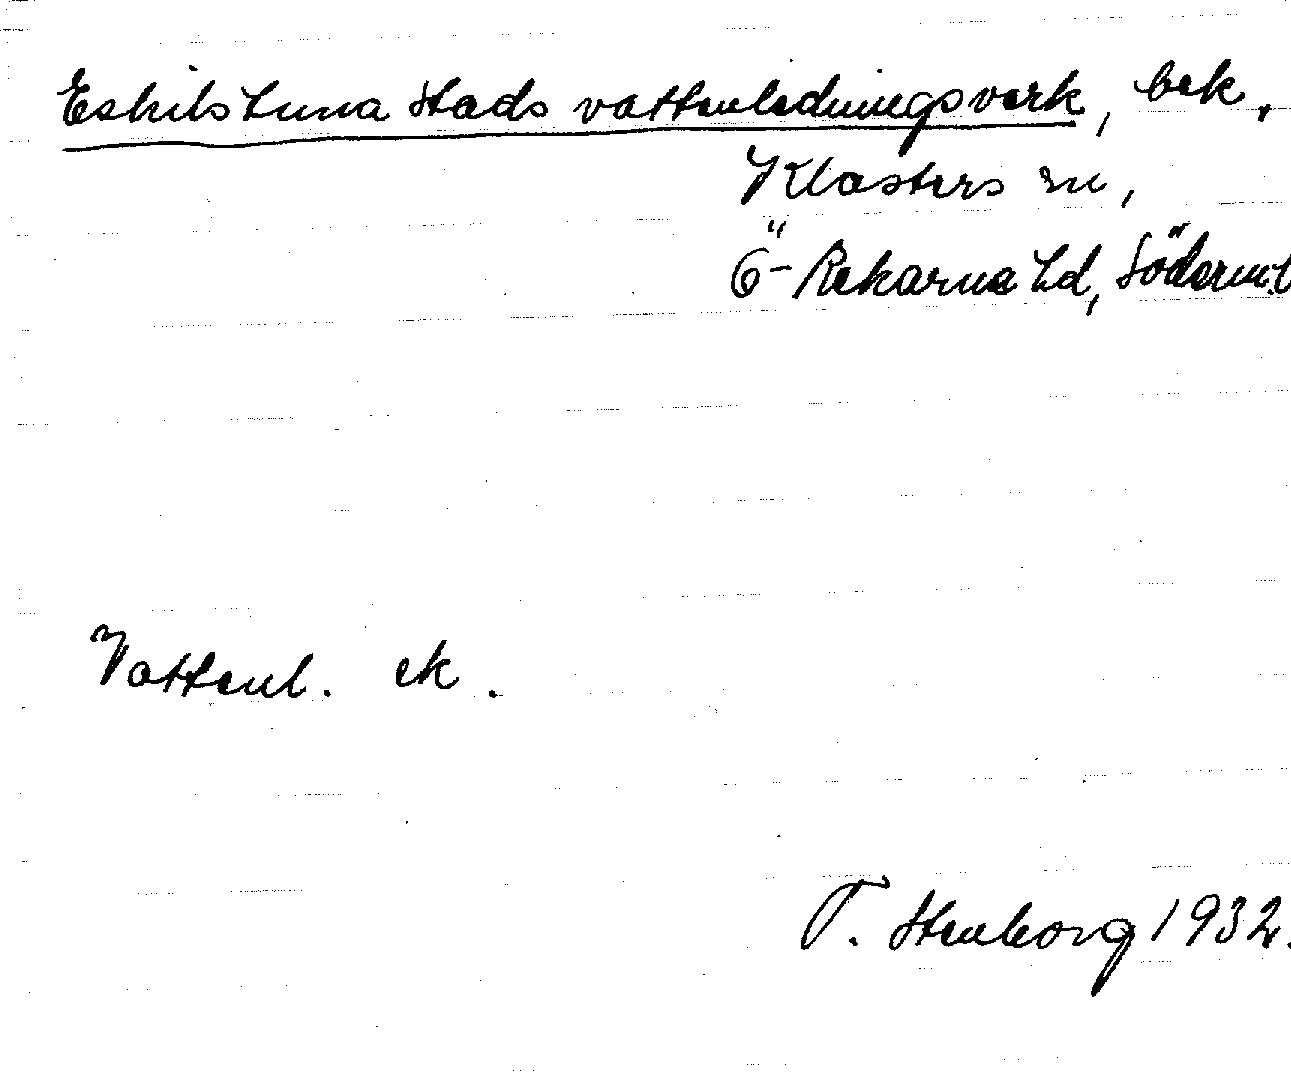 Eskilstuna stads vattenledningsverk, bek.
Klosters sn,
Ö-Rekarne hd, Söderm.l
Vattenl. ek.
T. Stenborg 1932.